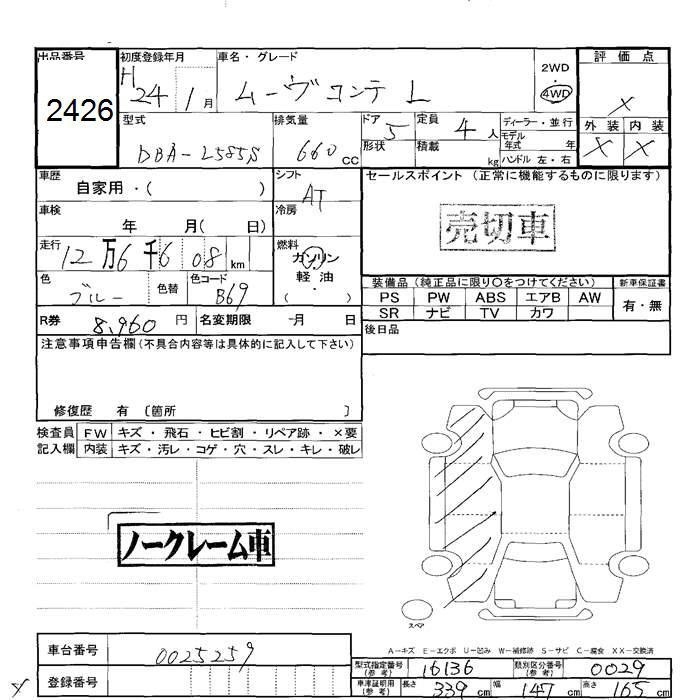 出品番号
2426
初度登録年月
H 24 1月
車名・グレード
ムーヴコンテ L
2WD
4WD
評価点
X
外装 内装
X X
型式
DBA-L585S
排気量
660 cc
ドア 5
形状
定員 4人
積載 kg
ディーラー・並行
モデル年式 年
ハンドル 左・右
車歴
自家用・( )
シフト
AT
セールスポイント (正常に機能するものに限ります)
売切車
車検
年 月( 日)
冷房
走行
12万6千608 km
燃料
ガソリン
軽油
( )
色
ブルー
色替
色コード
B69
装備品(純正品に限り○をつけてください)
新車保証書
PS PW ABS エアB AW
SR ナビ TV カワ
有・無
R券 8,960円
名変期限 -月 日
後日品
注意事項申告欄(不具合内容等は具体的に記入して下さい)
修復歴 有 〔箇所 〕
検査員 FW キズ・飛石・ヒビ割・リペア跡・×要
記入欄 内装 キズ・汚レ・コゲ・穴・スレ・キレ・破レ
ノークレーム車
スペア
A-キズ E-エクボ U-凹み W-補修跡 S-サビ C-腐食 XX-交換済
車台番号
0025259
登録番号
型式指定番号(参考) 16136
類別区分番号(参考) 0029
車庫証明用(参考) 長さ 339 cm 幅 147 cm 高さ 165 cm